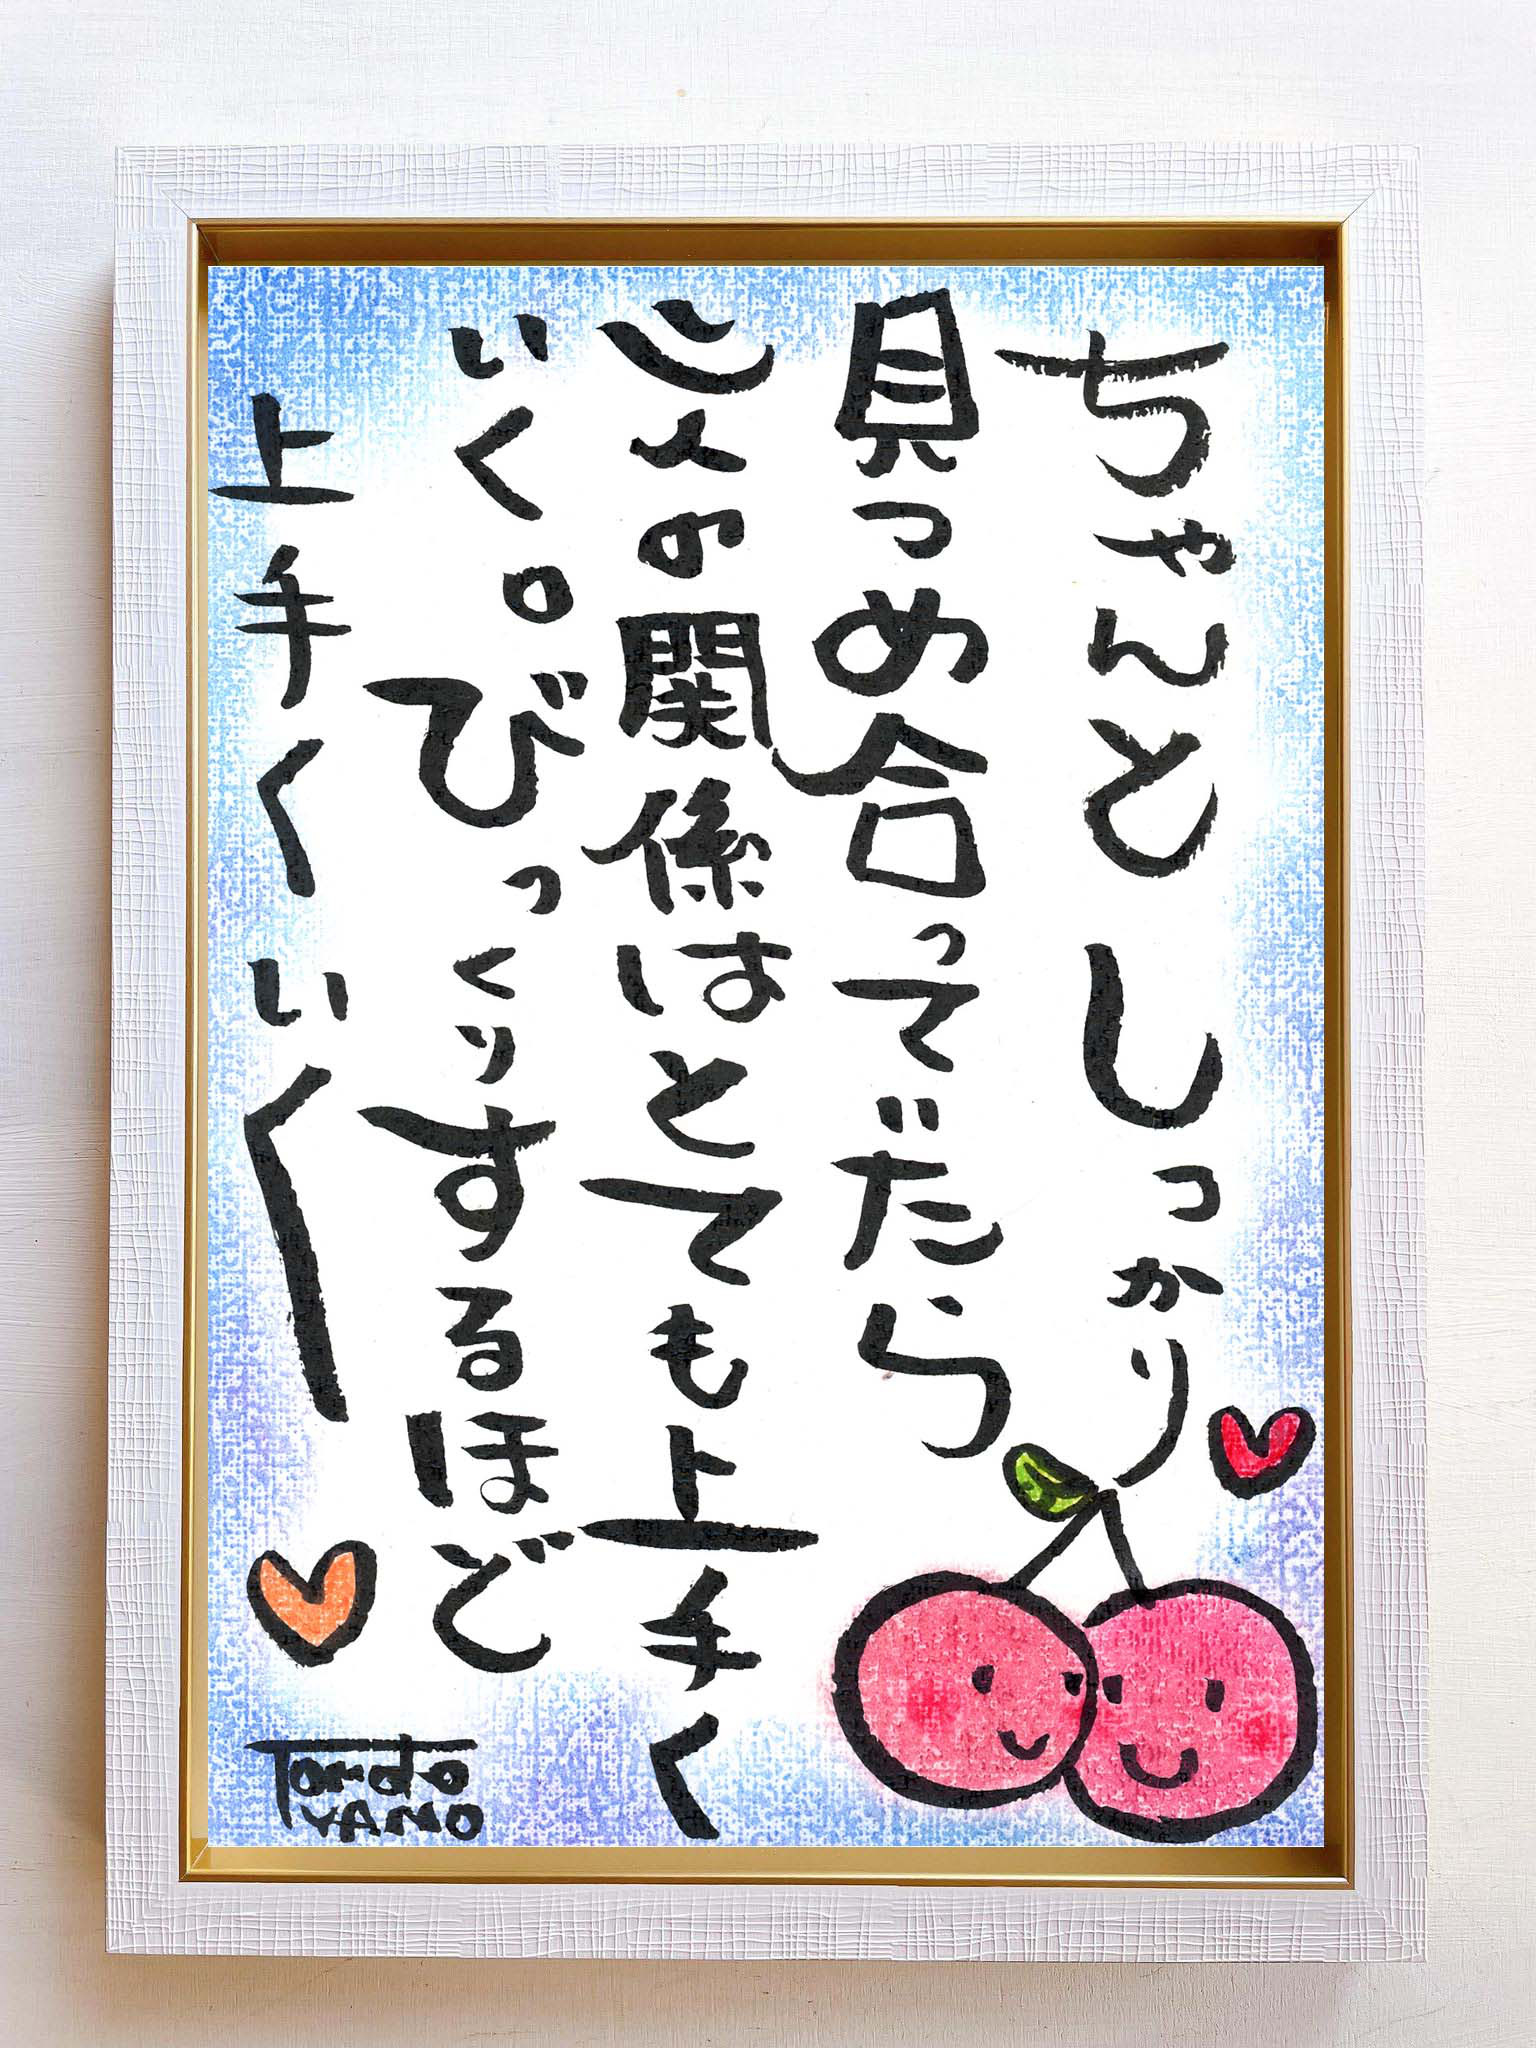 ちゃんとしっかり
見つめ合ってだら
二人の関係はとても上手く
いく。びっくりするほど
上手くいく
Tomato
KANZO